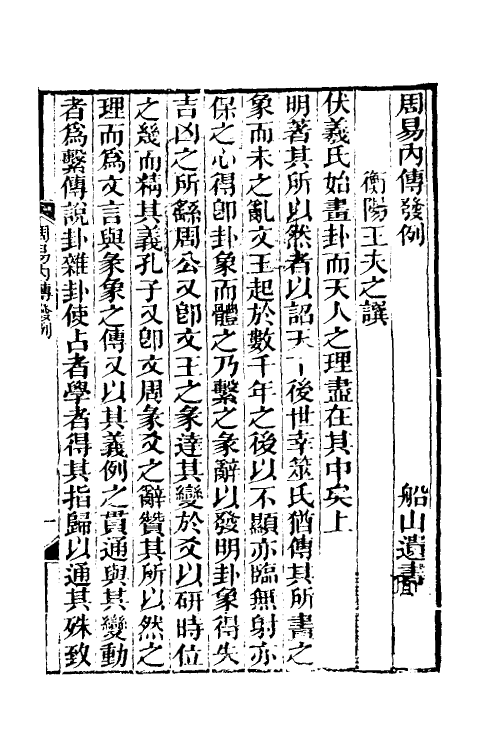 周易內傳發例 船山遺書
衡陽王夫之譔
伏羲氏始畫卦而天人之理盡在其中矣上
明著其所以然者以詔天下後世幸筮氏猶傳其所畫之
象而未之亂文王起於數千年之後以不顯亦臨無射亦
保之心得卽卦象而體之乃繫之彖辭以發明卦象得失
吉凶之所繇周公又卽文王之彖達其變於爻以研時位
之幾而精其義孔子又卽文周彖爻之辭贊其所以然之
理而爲文言與彖象之傳又以其義例之貫通與其變動
者爲繫傳說卦雜卦使占者學者得其指歸以通其殊致
周易內傳發例 一